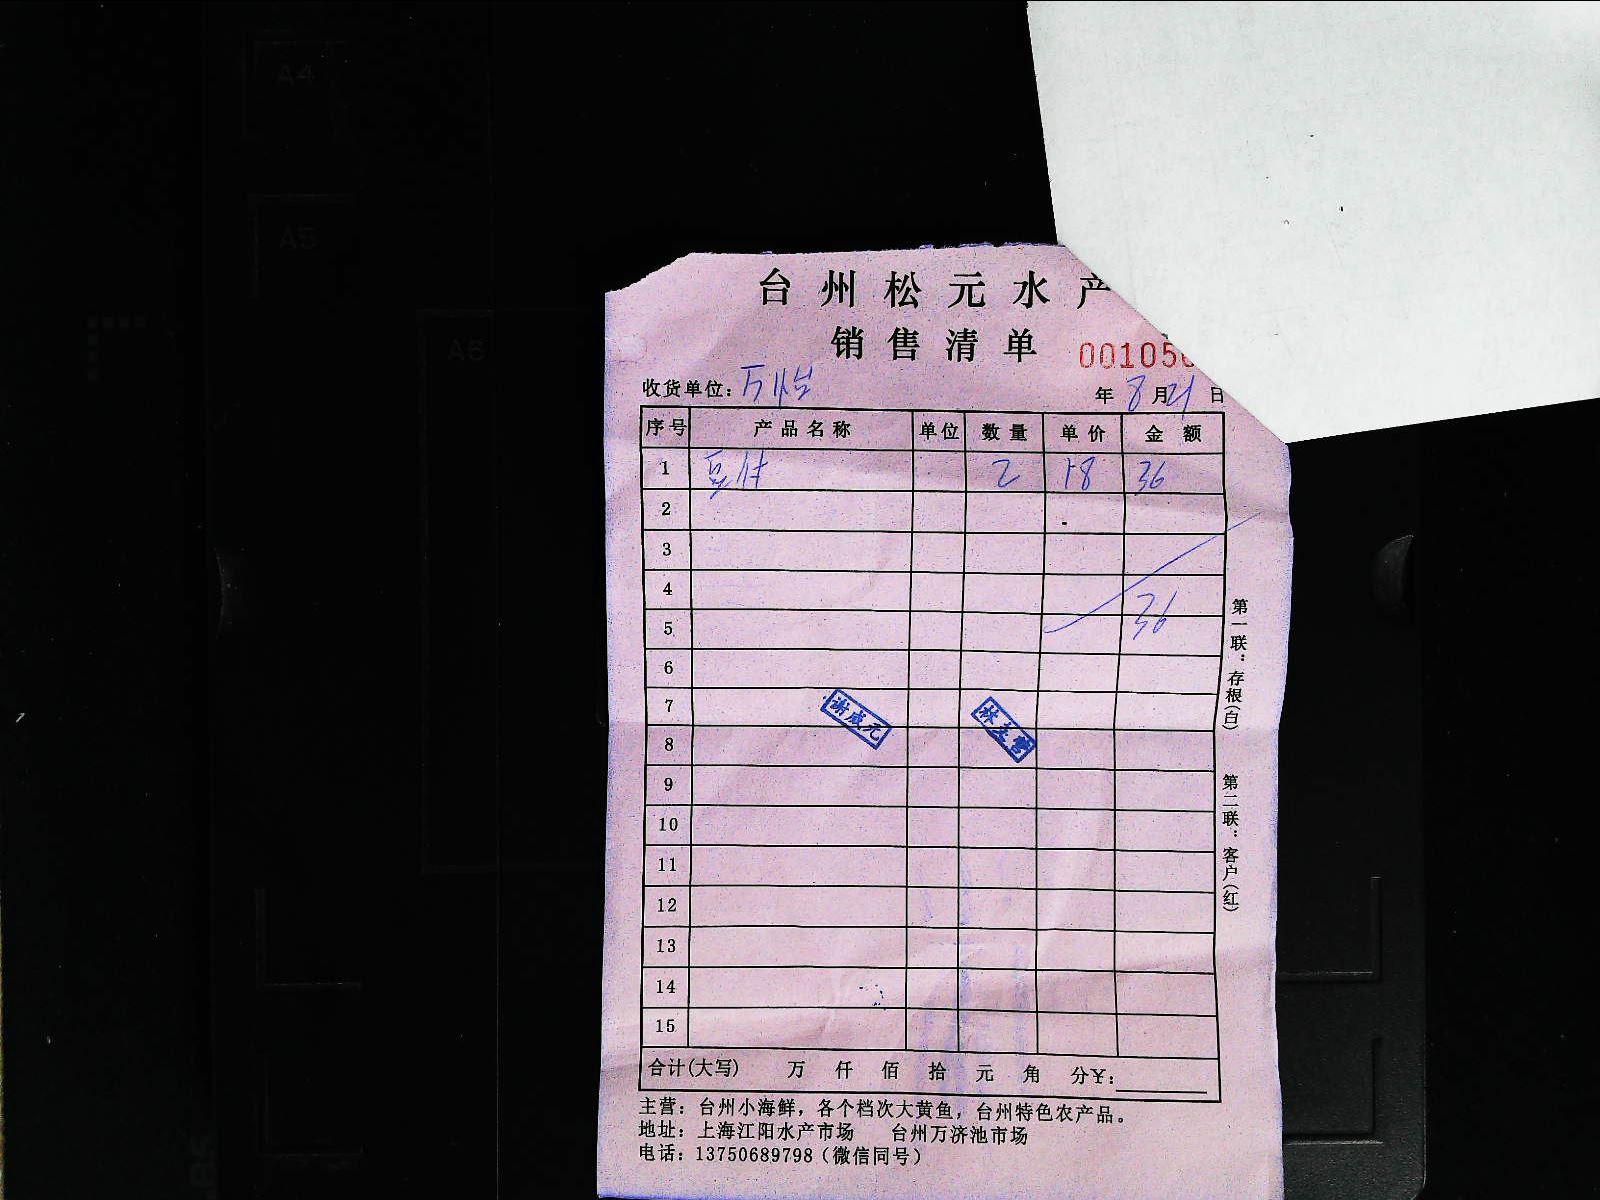 A4
A5
A6
台州松元水产
销售清单
001056
收货单位：万怡 年8月21日
序号 产品名称 单位 数量 单价 金额
1 2 18 36
2
3
4
36
5
6
7
谢威元
8
9
10
11
12
13
14
15
合计(大写) 万 仟 佰 拾 元 角 分¥：
主营：台州小海鲜，各个档次大黄鱼，台州特色农产品。
地址：上海江阳水产市场 台州万济池市场
电话：13750689798（微信同号）
第一联：存根(白)
第二联：客户(红)